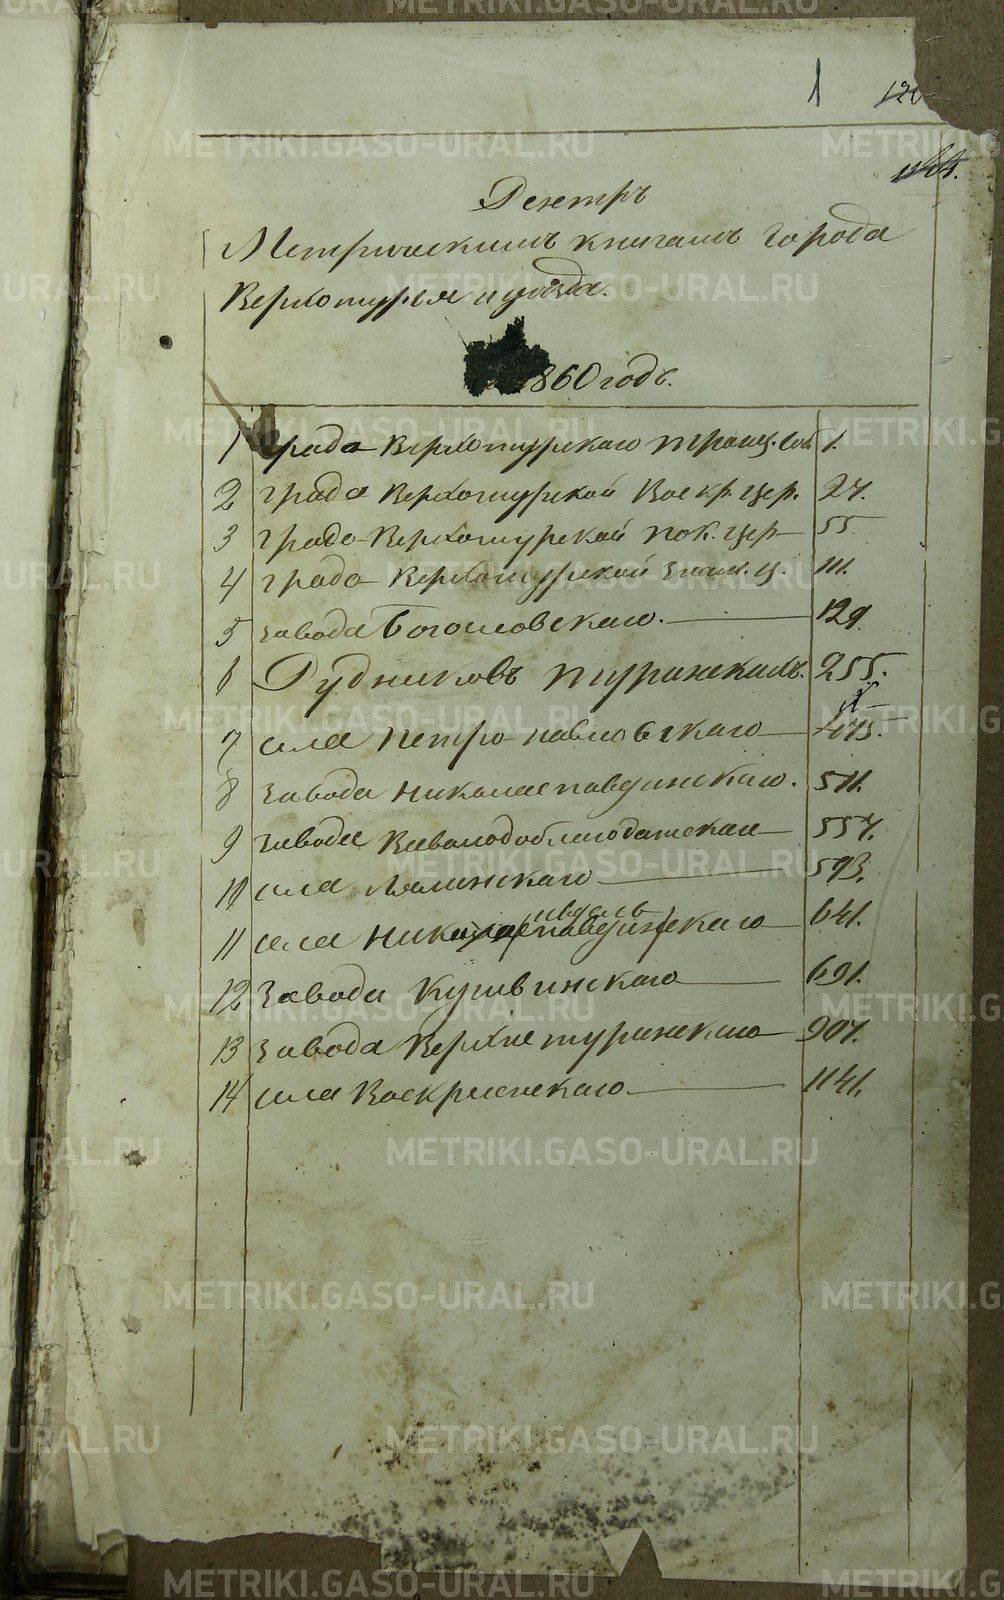 1
Реестръ
Метрическимъ книгамъ города
Верхотурья и уѣзда.
1860 годъ.
1 Града Верхотурскаго Троиц. Соб. 1.
2 града Верхотурской Воскр. цер. 27.
3 града Верхотурской Пок. цер 55
4 града Верхотурской Знам. ц. 111.
5 завода Богословскаго. 129.
6 Рудниковъ Туринскихъ. 255.
7 села Петро-павловскаго 475.
8 завода Николаепавдинскаго. 511.
9 завода Всеволодоблагодатскаго 557.
10 села Лялинскаго 593.
11 села Никола(павдин)скаго 641.
12 Завода Кушвинскаго 691.
13 Завода Верхнетуринскаго 907.
14 села Воскресенскаго 1141.
METRIKI.GASO-URAL.RU